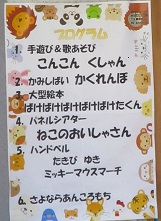 プログラム
1. 手遊び&歌あそび
こんこん くしゃん
2. かみしばい かくれんぼ
3. 大型絵本
ばけばけばけばけばけたくん
4. パネルシアター
ねこのおいしゃさん
5. ハンドベル
たきび ゆき
ミッキーマウスマーチ
6. さよならあんころもち